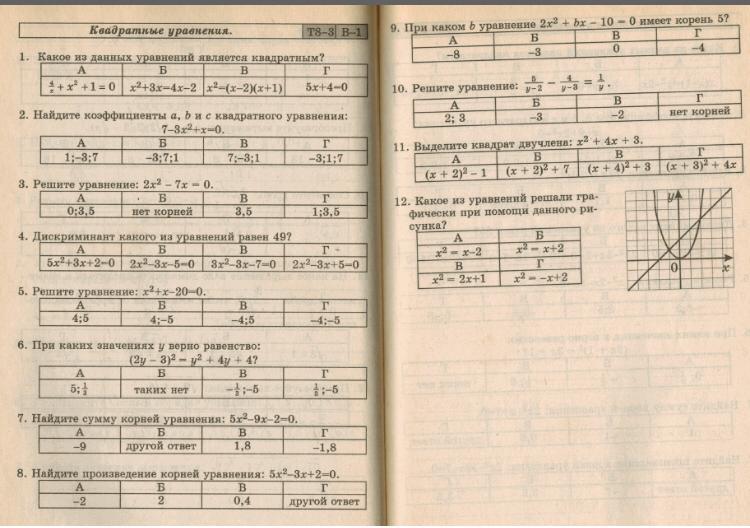 Квадратные уравнения. Т8–3 В–1
1. Какое из данных уравнений является квадратным?
А Б В Г
4/x + x² + 1 = 0 x²+3x=4x–2 x²=(x–2)(x+1) 5x+4=0
2. Найдите коэффициенты a, b и c квадратного уравнения:
7–3x²+x=0.
А Б В Г
1;–3;7 –3;7;1 7;–3;1 –3;1;7
3. Решите уравнение: 2x² – 7x = 0.
А Б В Г
0;3,5 нет корней 3,5 1;3,5
4. Дискриминант какого из уравнений равен 49?
А Б В Г
5x²+3x+2=0 2x²–3x–5=0 3x²–3x–7=0 2x²–3x+5=0
5. Решите уравнение: x²+x–20=0.
А Б В Г
4;5 4;–5 –4;5 –4;–5
6. При каких значениях y верно равенство:
(2y – 3)² = y² + 4y + 4?
А Б В Г
5;1/3 таких нет –1/3;–5 1/3;–5
7. Найдите сумму корней уравнения: 5x²–9x–2=0.
А Б В Г
–9 другой ответ 1,8 –1,8
8. Найдите произведение корней уравнения: 5x²–3x+2=0.
А Б В Г
–2 2 0,4 другой ответ
9. При каком b уравнение 2x² + bx – 10 = 0 имеет корень 5?
А Б В Г
–8 –3 0 –4
10. Решите уравнение: 5/(y–2) – 4/(y–3) = 1/y.
А Б В Г
2; 3 –3 –2 нет корней
11. Выделите квадрат двучлена: x² + 4x + 3.
А Б В Г
(x + 2)² – 1 (x + 2)² + 7 (x + 4)² + 3 (x + 3)² + 4x
12. Какое из уравнений решали гра-
фически при помощи данного ри-
сунка?
А Б
x² = x–2 x² = x+2
В Г
x² = 2x+1 x² = –x+2
y
0 x